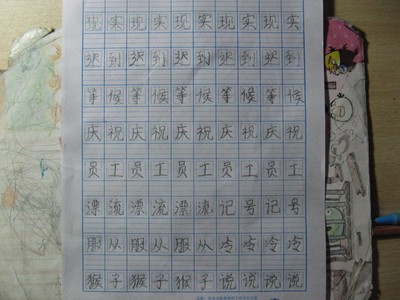 现实现实现实现实现实
迟到迟到迟到迟到迟到
等候等候等候等候等候
庆祝庆祝庆祝庆祝庆祝
员工员工员工员工员工
漂流漂流漂流记号记号
服从服从服从冷冷冷冷
猴子猴子猴子说说说说